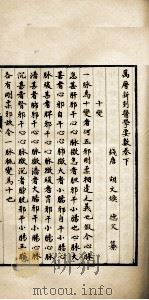 萬曆新刻醫學要數卷下
錢唐 胡文煥 德父 纂
十變
一脉為十變者何五邪剛柔相逢之義假令心脉
急甚者肝邪干心心脉微急者膽邪干小腸心脉大
甚者心邪自干心心脉微大者小腸邪自干小腸心
脉緩甚者脾邪干心心脉微緩者胃邪干小腸心脉
濇甚者肺邪干心心脉微濇者大腸邪干小腸心脉
沉甚者腎邪干心心脉微沉者膀胱邪干小腸五臟
各有剛柔邪故令一脉輒變為十也
www.mtoou.info